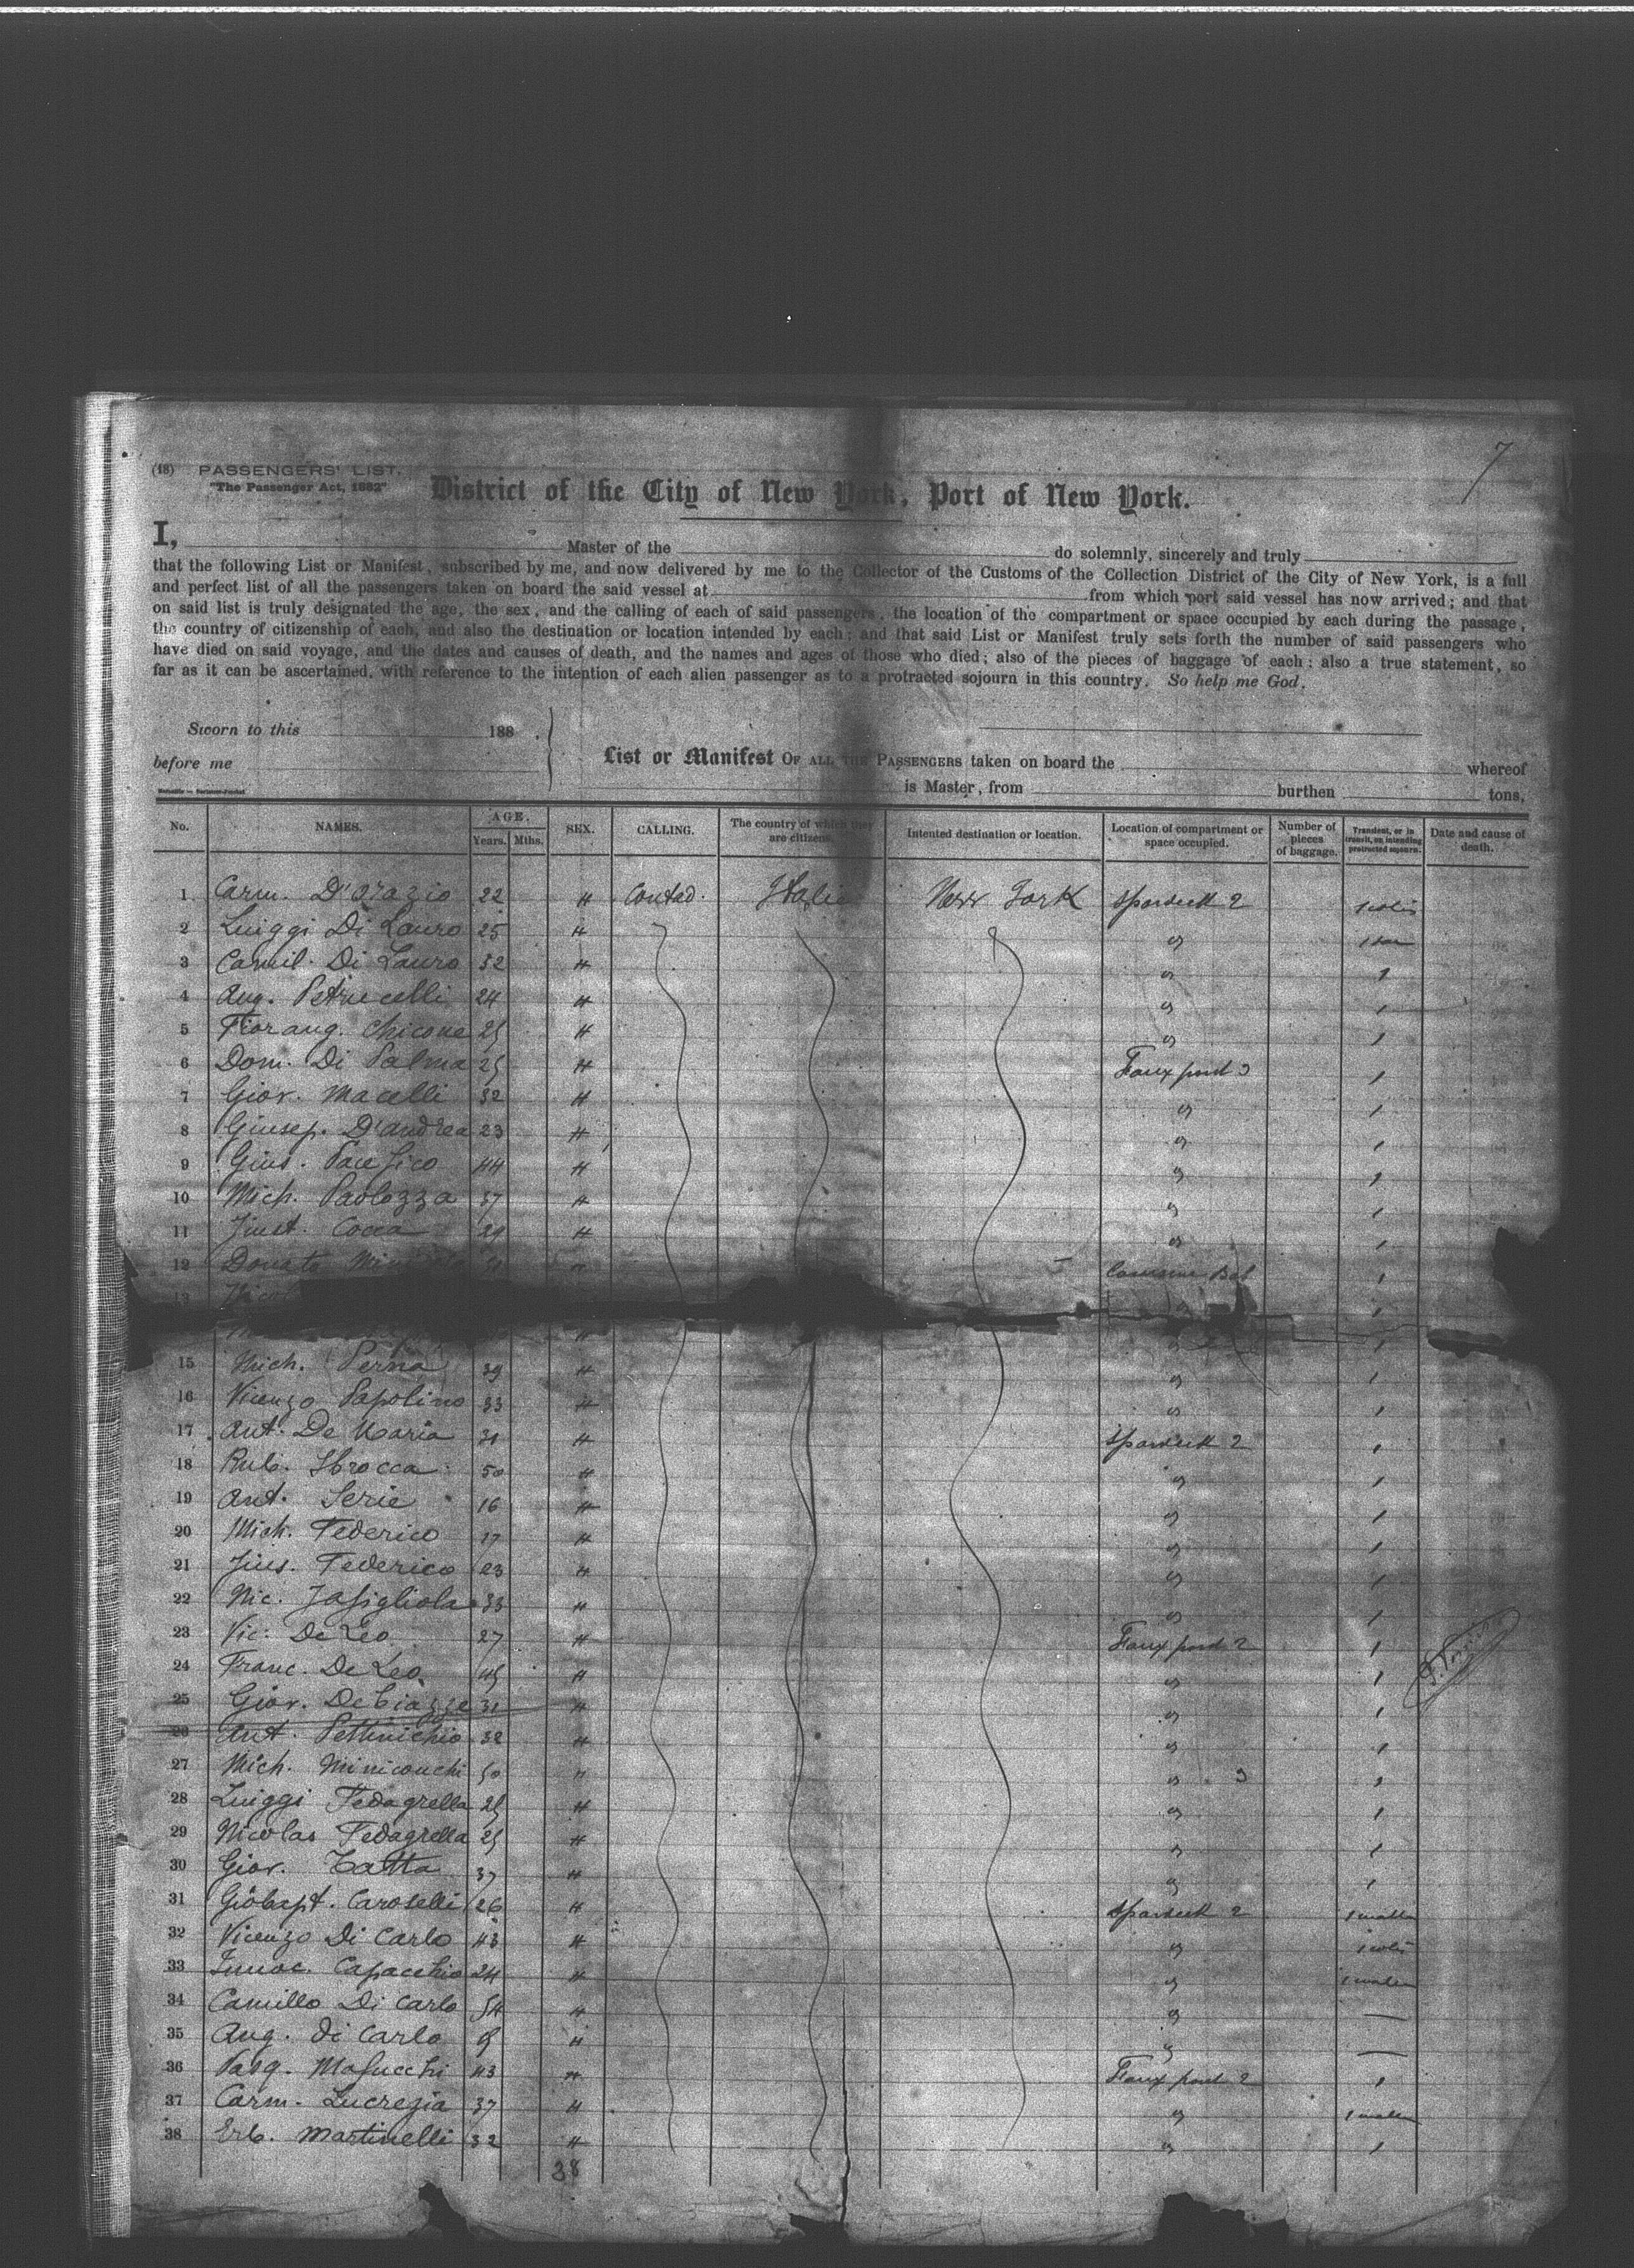 7
(18) PASSENGERS' LIST.
"The Passenger Act, 1882"
District of the City of New York, Port of New York.
I, Master of the do solemnly, sincerely and truly
that the following List or Manifest, subscribed by me, and now delivered by me to the Collector of the Customs of the Collection District of the City of New York, is a full
and perfect list of all the passengers taken on board the said vessel at from which port said vessel has now arrived; and that
on said list is truly designated the age, the sex, and the calling of each of said passengers, the location of the compartment or space occupied by each during the passage,
the country of citizenship of each, and also the destination or location intended by each; and that said List or Manifest truly sets forth the number of said passengers who
have died on said voyage, and the dates and causes of death, and the names and ages of those who died; also of the pieces of baggage of each; also a true statement, so
far as it can be ascertained, with reference to the intention of each alien passenger as to a protracted sojourn in this country. So help me God.
Sworn to this 188 .
before me
List or Manifest OF ALL THE PASSENGERS taken on board the whereof
is Master, from burthen tons,
No. NAMES. AGE. Years. Mths. SEX. CALLING. The country of which they are citizens. Intented destination or location. Location of compartment or space occupied. Number of pieces of baggage. Transient, or in transit, on intending protracted sojourn. Date and cause of death.
1 Carm. D'Orazio 22 H Contad. Italie New York Spardeck 2 1 colis
2 Luiggi Di Lauro 25 H " 1
3 Camil. Di Lauro 32 H " 1
4 Aug. Petrucelli 24 H " 1
5 Fiorang. Chicone 25 H " 1
6 Dom. Di Palma 25 H Faux pont 3 1
7 Giov. Macelli 32 H " 1
8 Giusep. D'andrea 23 H " 1
9 Gius. Pacifico 44 H " 1
10 Mich. Paolozza 37 H " 1
11 Cocca 29 H " 1
12 Donato 1
13 " 1
" 1
15 Mich. Perna 39 H " 1
16 Vicenzo Papolino 33 H " 1
17 Ant. De Maria 31 H Spardeck 2 1
18 Rub. Sbrocca 50 H " 1
19 Ant. Serie 16 H " 1
20 Mich. Federico 17 H " 1
21 Jius. Federico 23 H " 1
22 Nic. 33 H " 1
23 Vic. De Leo 27 H Faux pont 2 1
24 Franc. De Leo 45 H " 1
25 Giov. 31 H " 1
26 Ant. Pettinichio 32 H " 1
27 Mich. Miniconchi 50 " " 3 1
28 Luiggi Fedagrella 25 H " 1
29 Nicolas Fedagrella 25 H " 1
30 Giov. Zatta 37 H " 1
31 Giobapt. Caroselli 26 H Spardeck 2 1 malle
32 Vicenzo Di Carlo 43 H " 1 colis
33 Innoc. Capacchio 24 H " 1 malle
34 Camillo Di Carlo 54 H " —
35 Aug. Di Carlo 9 H " —
36 Pasq. Masucchi 43 H Faux pont 2 1
37 Carm. Lucrezia 37 H " 1 malle
38 Erb. Martinelli 32 H " 1
38